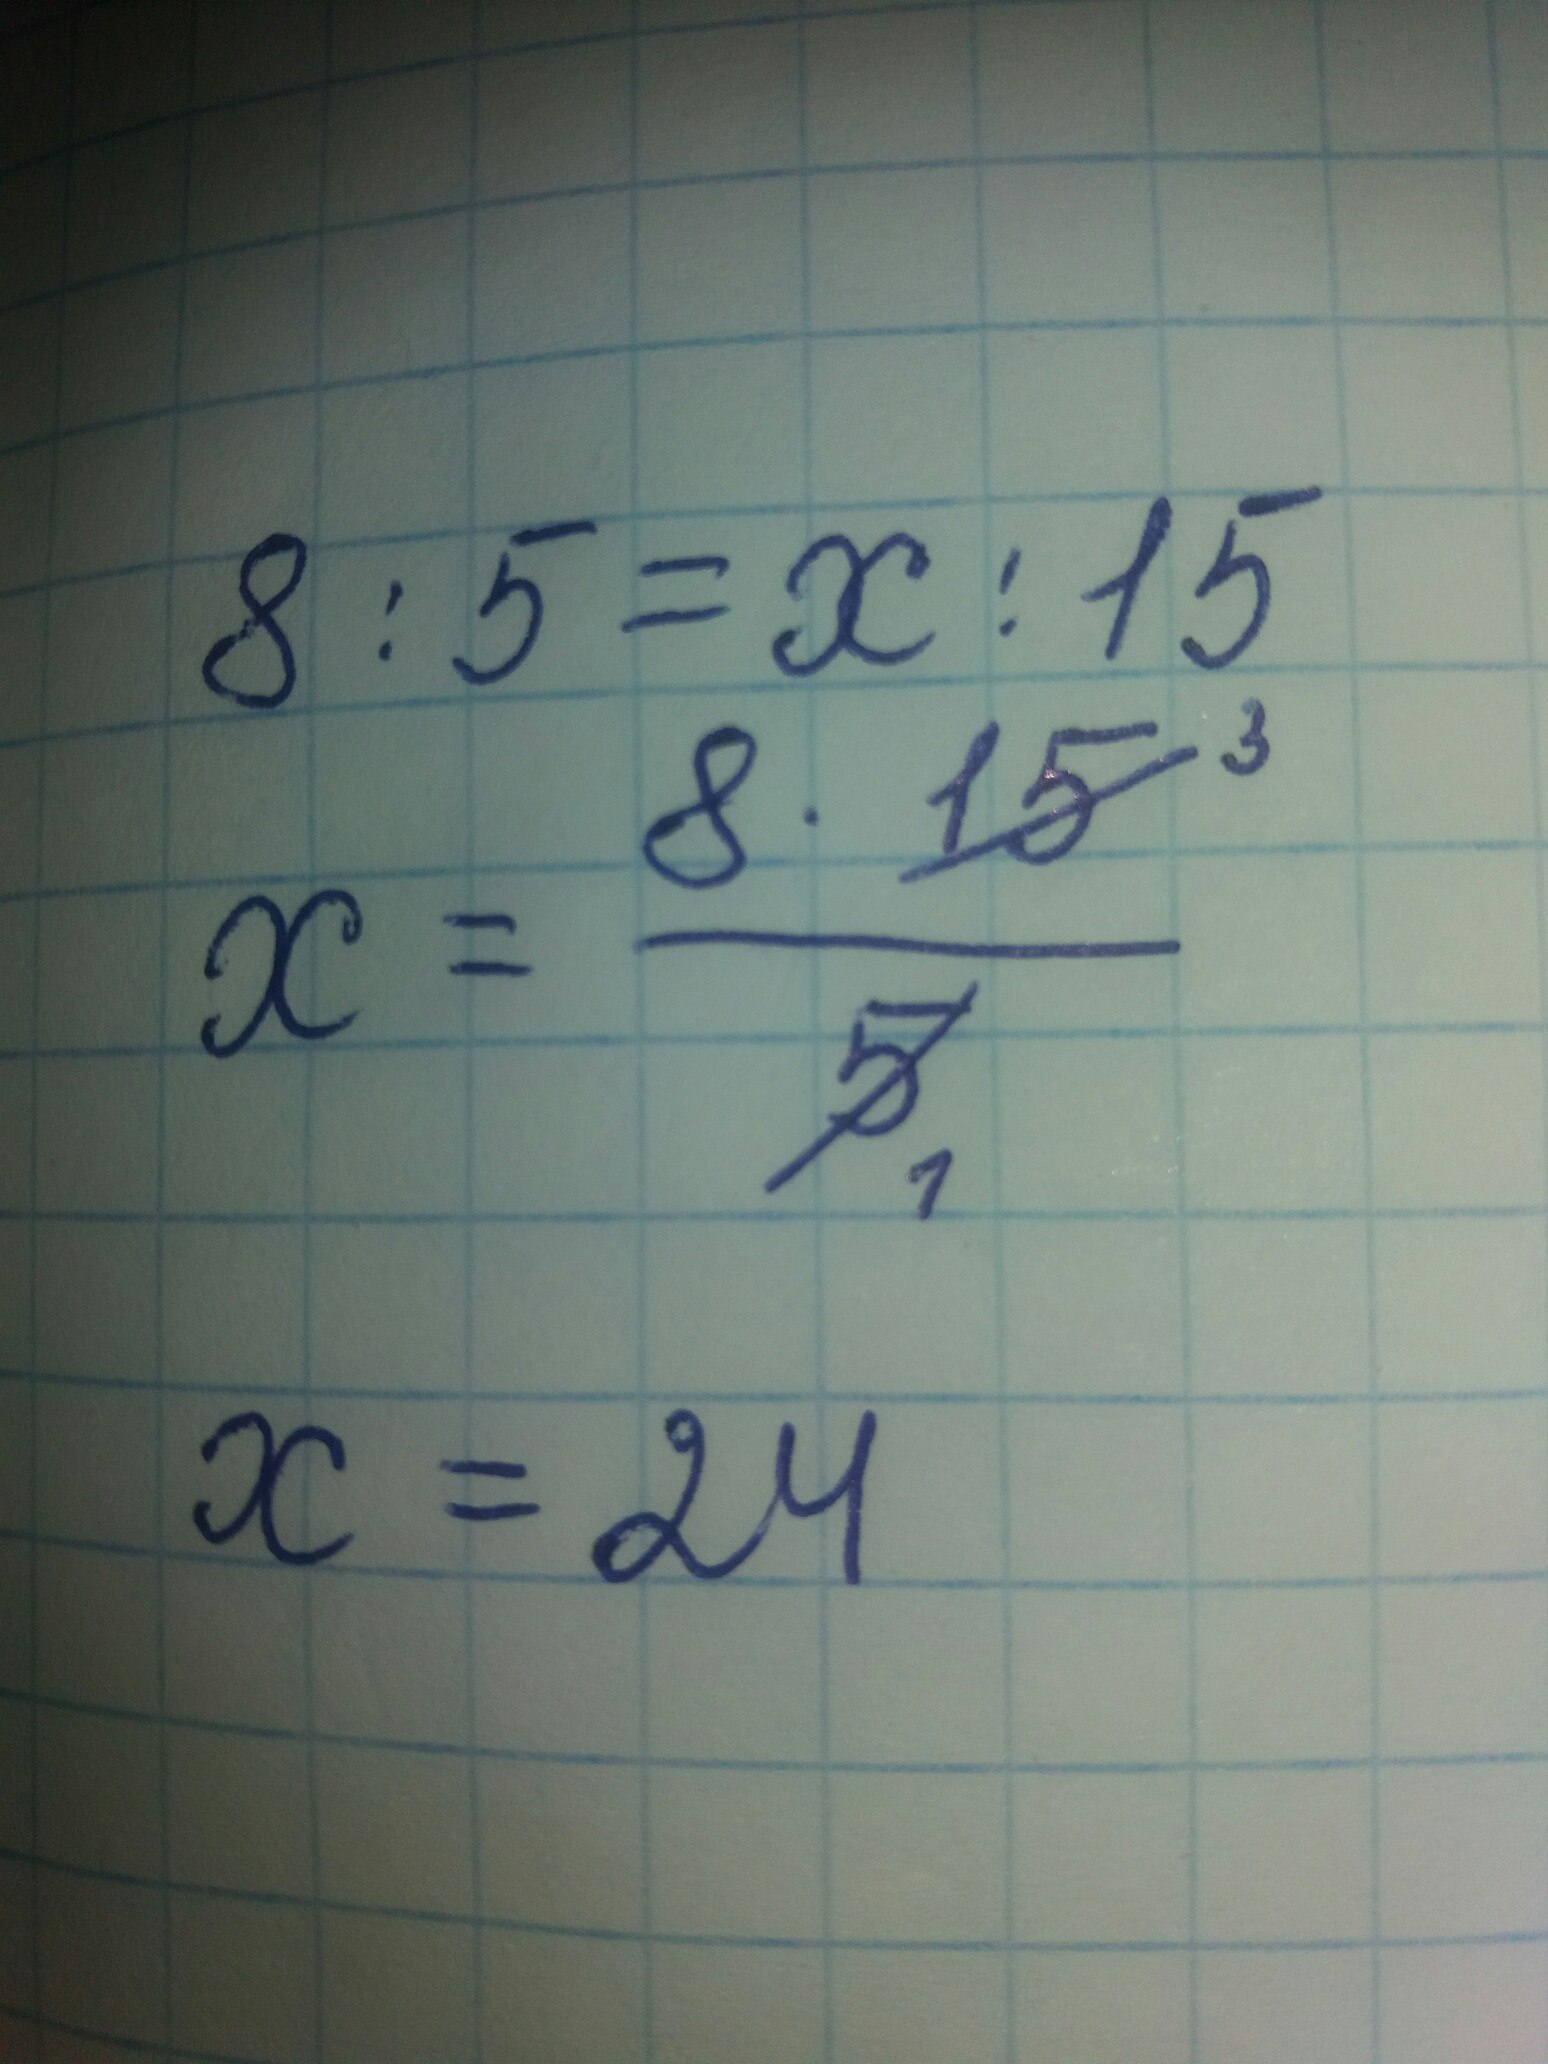 8 : 5 = x : 15
x = 8 · 15 3 / 5 1
x = 24